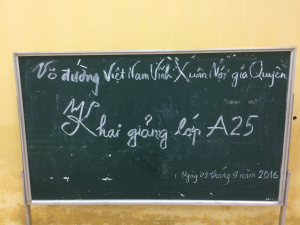 Võ đường Việt Nam Vĩnh Xuân Nội gia Quyền
Khai giảng lớp A25
Ngày 09 tháng 9 năm 2016